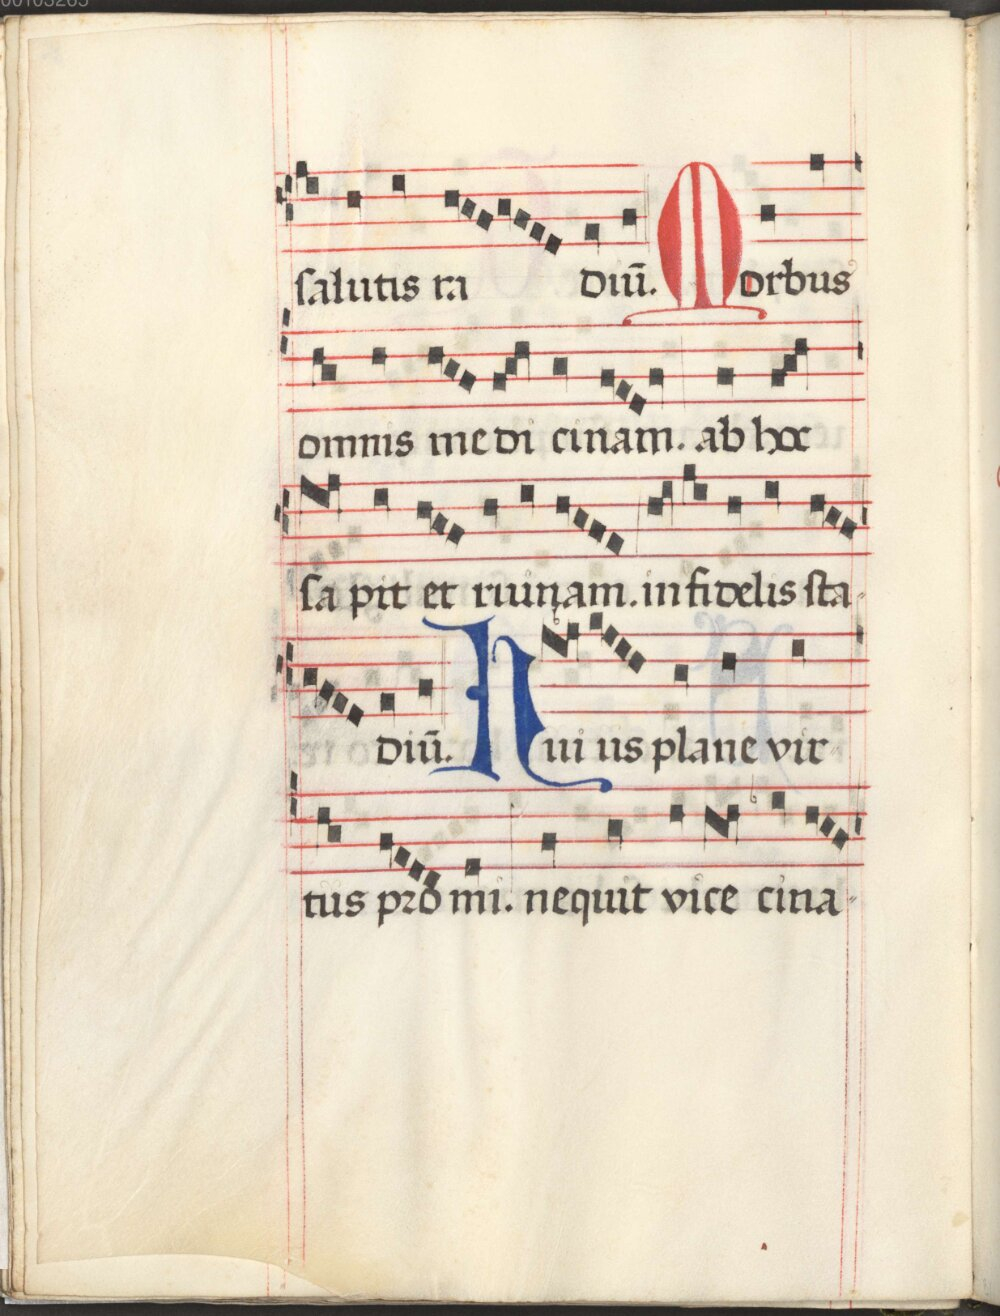 salutis ra diū. Morbus
omnis medi cinam. ab hoc
sa pit et ruinam. infidelis sta-
diū. Huius plane vir-
tus pro mi. nequit vice cina-